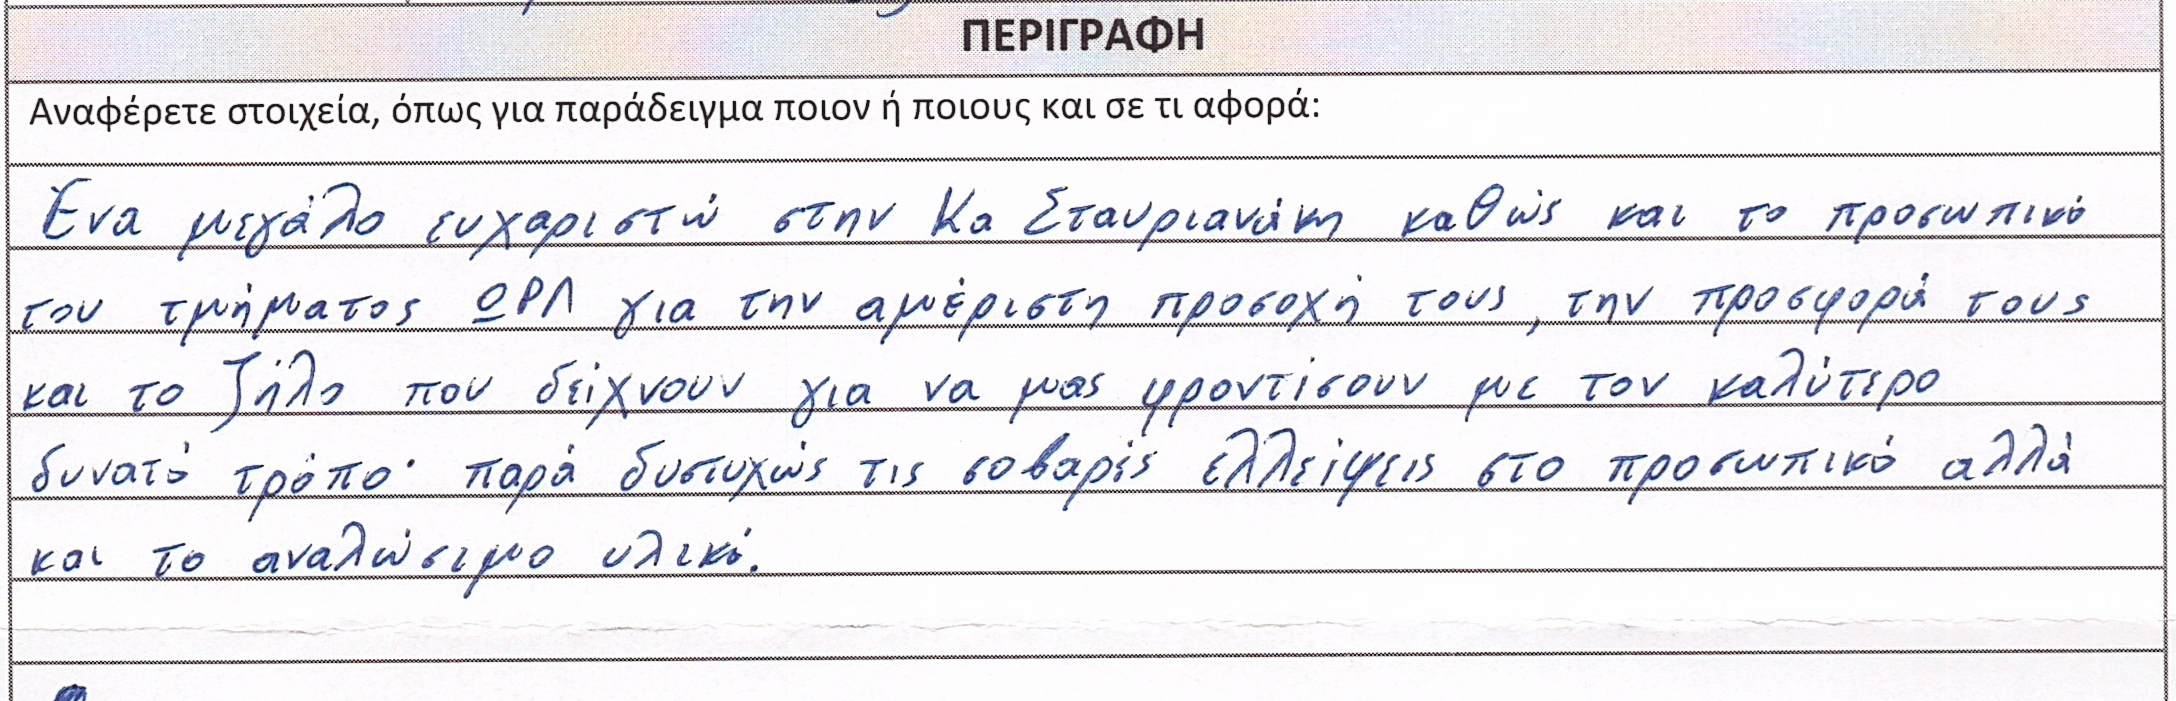 ΠΕΡΙΓΡΑΦΗ
Αναφέρετε στοιχεία, όπως για παράδειγμα ποιον ή ποιους και σε τι αφορά:
Ένα μεγάλο ευχαριστώ στην Κα Σταυριανάκη καθώς και το προσωπικό
του τμήματος ΩΡΛ για την αμέριστη προσοχή τους, την προσφορά τους
και το ζήλο που δείχνουν για να μας φροντίσουν με τον καλύτερο
δυνατό τρόπο· παρά δυστυχώς τις σοβαρές ελλείψεις στο προσωπικό αλλά
και το αναλώσιμο υλικό.